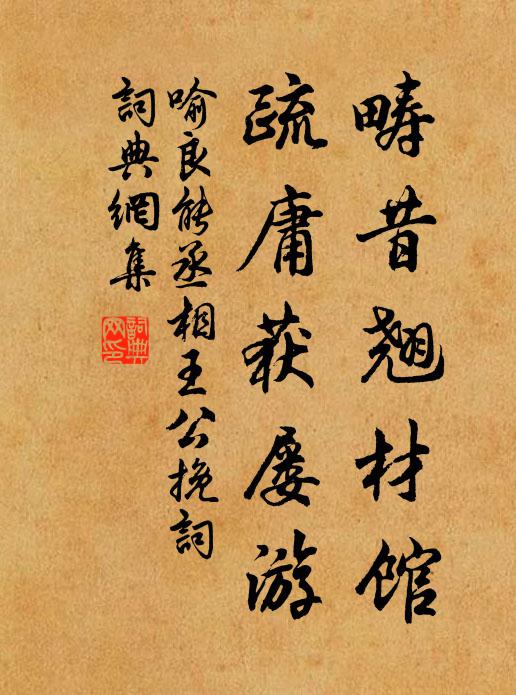 疇昔翹材館
疏庸获屡游
喻良能丞相王公挽詞
詞典網集
詞典网印